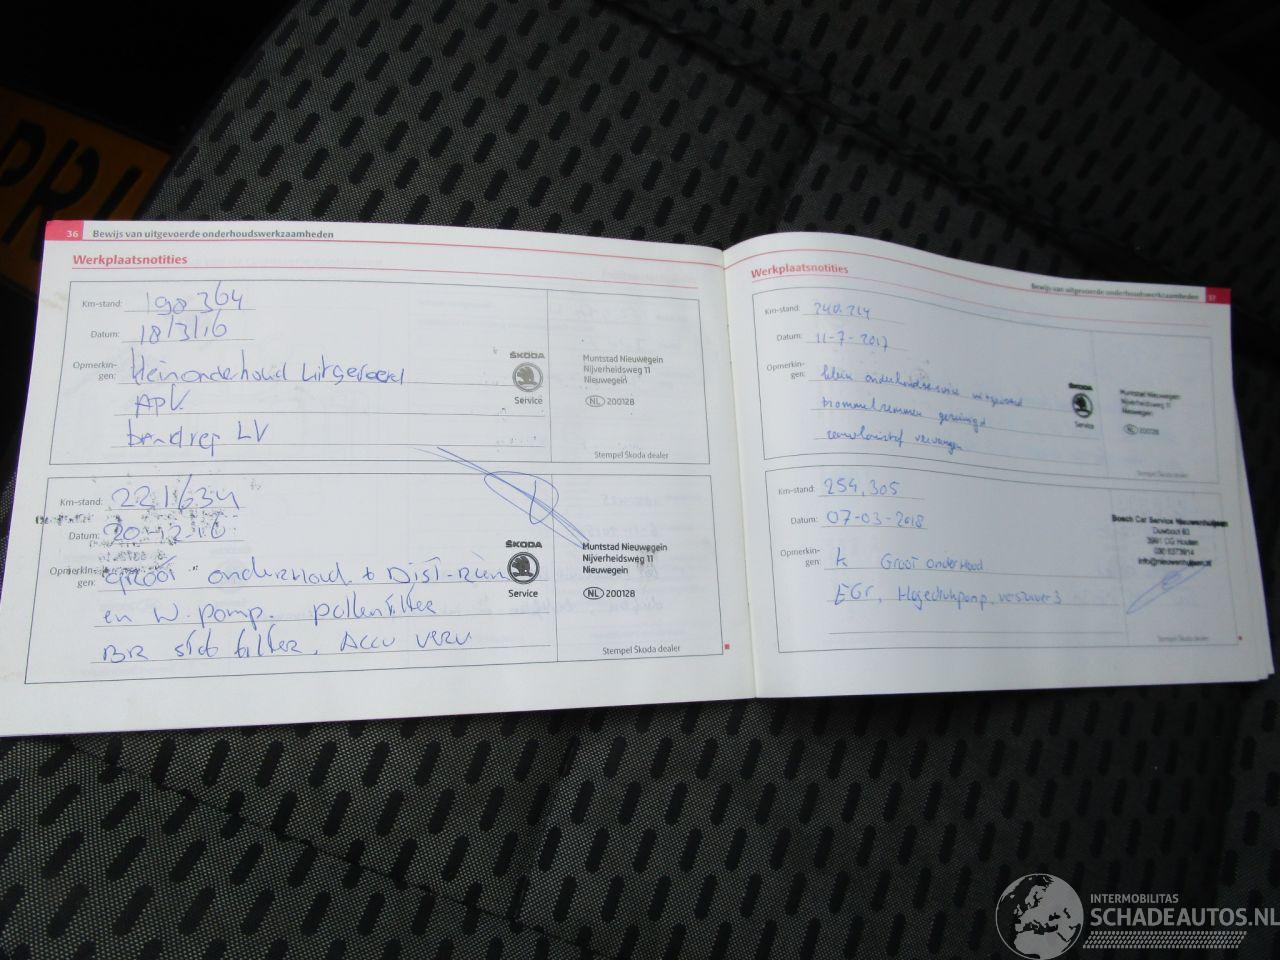 PRI
36 Bewijs van uitgevoerde onderhoudswerkzaamheden
Werkplaatsnotities
Km-stand: 198364
Datum: 18/3/16
Opmerkin-
gen: kleinonderhoud uitgevoerd
APK
bandrep LV
ŠKODA
Service
Muntstad Nieuwegein
Nijverheidsweg 11
Nieuwegein
NL 200128
Stempel Škoda dealer
Km-stand: 221634
Datum: 20-12-16
Opmerkin-
gen: groot onderhoud + Dist-riem
en W.pomp. pollenfilter
BR stof filter, Accu verv.
ŠKODA
Service
Muntstad Nieuwegein
Nijverheidsweg 11
Nieuwegein
NL 200128
Stempel Škoda dealer
Bewijs van uitgevoerde onderhoudswerkzaamheden 37
Werkplaatsnotities
Km-stand: 240.214
Datum: 11-7-2017
Opmerkin-
gen: klein onderhoudservice uitgevoerd
trommelremmen gereinigd
vervangen
ŠKODA
Service
Muntstad Nieuwegein
Nijverheidsweg 11
Nieuwegein
NL 200128
Stempel Škoda dealer
Km-stand: 254,305
Datum: 07-03-2018
Opmerkin-
gen: Groot onderhoud
EGr, Hogedrukpomp,
Bosch Car Service Nieuwenhuijsen
Duwboot 63
3991 CG Houten
030 6373914
Stempel Škoda dealer
INTERMOBILITAS
SCHADEAUTOS.NL